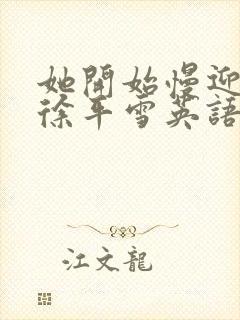 她開始慢迎
徐平雪英語
江文龍